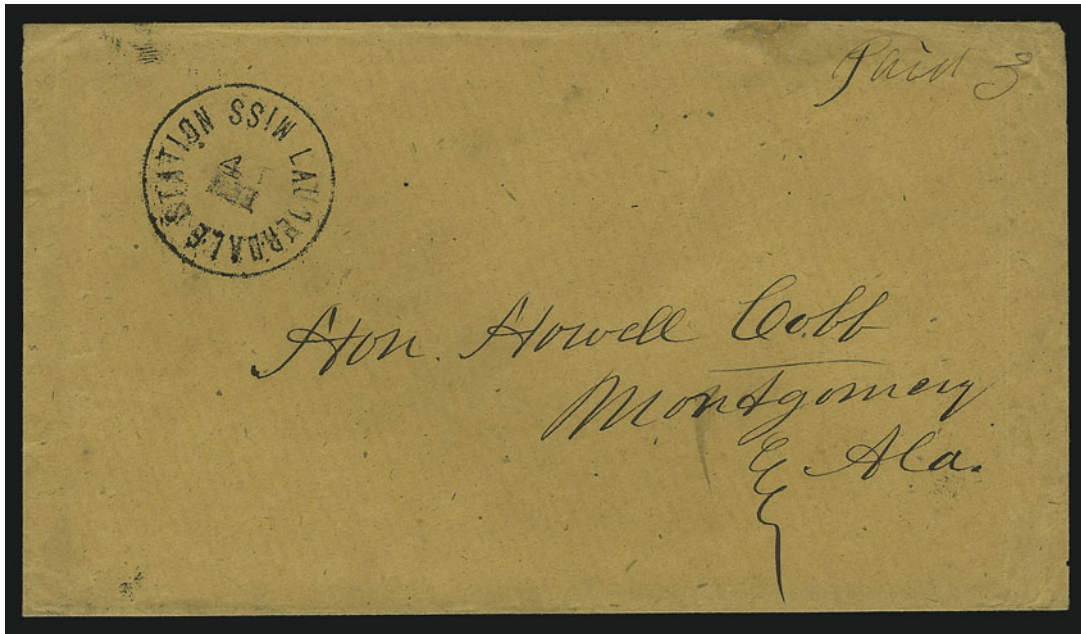 Paid 3
LAUDERDALE STATION MISS
Hon. Howell Cobb
Montgomery
Ala.